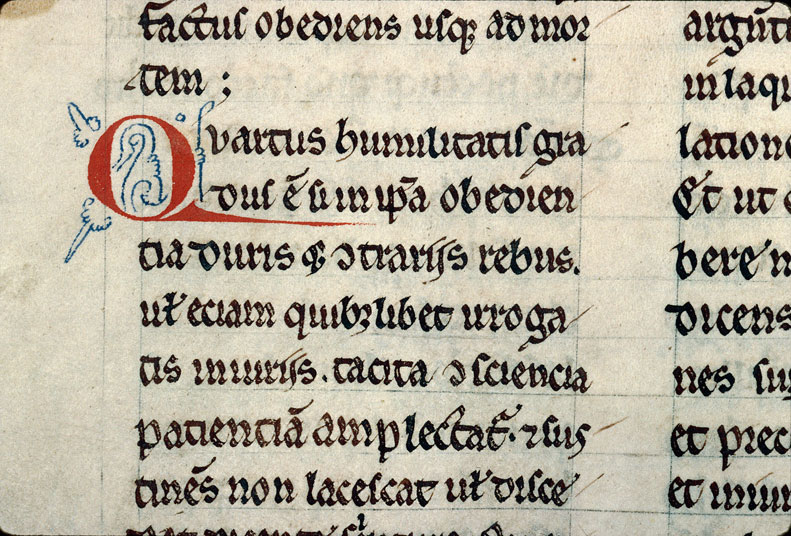 factus obediens usqꝫ ad mor
tem ;
Quartus humilitatis gra
dus ē si in ip̄a obedien
tia duris qꝫ ↄtrarijs rebus.
ul̛ eciam quibꝫlibet irroga
tis iniurijs. tacita ↄsciencia
pacienciā amplectat᷑. ⁊ sus
tinēs non lacescat ul̛ disce
argūt
in laqu
lation
Et ut
bere
dicens
nes su
et prec
et iniur